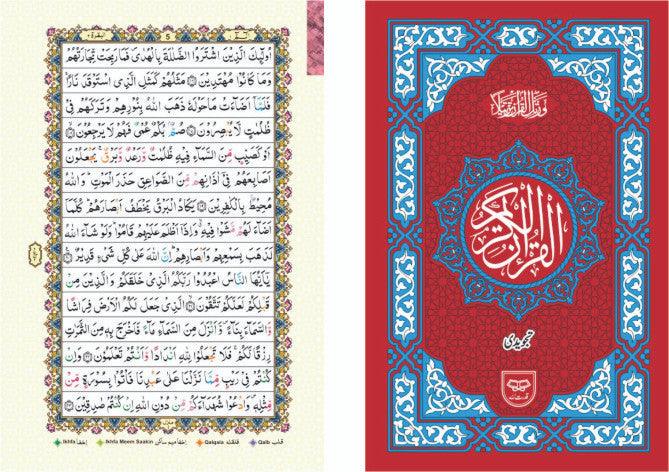 البقرة ٢ 5 الٓمّٓ ١
اُولٰٓئِكَ الَّذِيْنَ اشْتَرَوُا الضَّلٰلَةَ بِالْهُدٰى فَمَا رَبِحَتْ تِّجَارَتُهُمْ
وَمَا كَانُوْا مُهْتَدِيْنَ ۝ مَثَلُهُمْ كَمَثَلِ الَّذِى اسْتَوْقَدَ نَارًا
فَلَمَّآ اَضَآءَتْ مَا حَوْلَهٗ ذَهَبَ اللّٰهُ بِنُوْرِهِمْ وَتَرَكَهُمْ فِىْ
ظُلُمٰتٍ لَّا يُبْصِرُوْنَ ۝ صُمٌّۢ بُكْمٌ عُمْىٌ فَهُمْ لَا يَرْجِعُوْنَ ۝
اَوْ كَصَيِّبٍ مِّنَ السَّمَآءِ فِيْهِ ظُلُمٰتٌ وَّرَعْدٌ وَّبَرْقٌ يَجْعَلُوْنَ
اَصَابِعَهُمْ فِىْٓ اٰذَانِهِمْ مِّنَ الصَّوَاعِقِ حَذَرَ الْمَوْتِ وَاللّٰهُ
مُحِيْطٌۢ بِالْكٰفِرِيْنَ ۝ يَكَادُ الْبَرْقُ يَخْطَفُ اَبْصَارَهُمْ كُلَّمَآ
اَضَآءَ لَهُمْ مَّشَوْا فِيْهِ وَاِذَآ اَظْلَمَ عَلَيْهِمْ قَامُوْا وَلَوْ شَآءَ اللّٰهُ
لَذَهَبَ بِسَمْعِهِمْ وَاَبْصَارِهِمْ اِنَّ اللّٰهَ عَلٰى كُلِّ شَىْءٍ قَدِيْرٌ ۝
يٰٓاَيُّهَا النَّاسُ اعْبُدُوْا رَبَّكُمُ الَّذِىْ خَلَقَكُمْ وَالَّذِيْنَ مِنْ
قَبْلِكُمْ لَعَلَّكُمْ تَتَّقُوْنَ ۝ الَّذِىْ جَعَلَ لَكُمُ الْاَرْضَ فِرَاشًا
وَّالسَّمَآءَ بِنَآءً وَّاَنْزَلَ مِنَ السَّمَآءِ مَآءً فَاَخْرَجَ بِهٖ مِنَ الثَّمَرٰتِ
رِزْقًا لَّكُمْ فَلَا تَجْعَلُوْا لِلّٰهِ اَنْدَادًا وَّاَنْتُمْ تَعْلَمُوْنَ ۝ وَاِنْ
كُنْتُمْ فِىْ رَيْبٍ مِّمَّا نَزَّلْنَا عَلٰى عَبْدِنَا فَاْتُوْا بِسُوْرَةٍ مِّنْ
مِّثْلِهٖ وَادْعُوْا شُهَدَآءَكُمْ مِّنْ دُوْنِ اللّٰهِ اِنْ كُنْتُمْ صٰدِقِيْنَ ۝
Ikhfa اخفا Ikhfa Meem Saakin اخفا میم ساکن Qalqala قلقله Qalb قلب
وَرَتِّلِ الْقُرْاٰنَ تَرْتِيْلًا
القرآن الكريم
تجویدی
قدرت اللہ